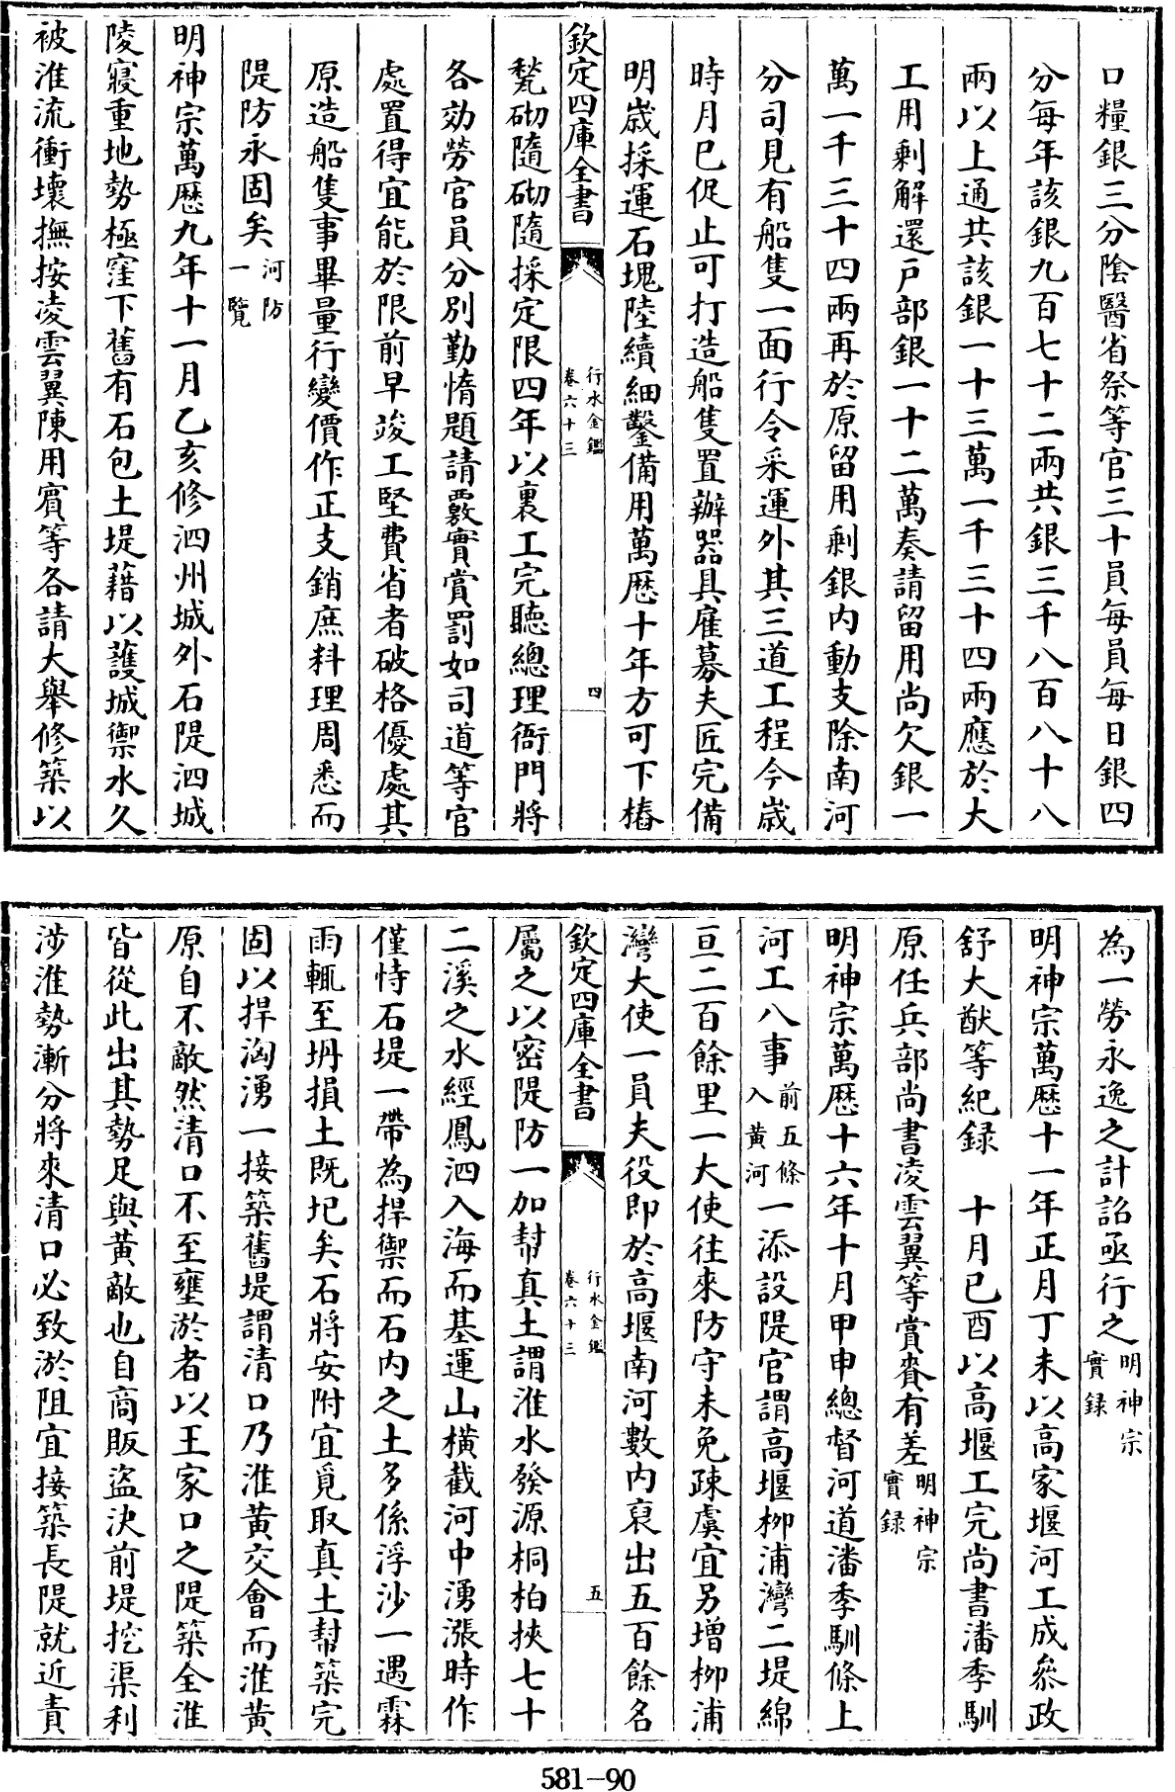 口糧銀三分陰醫省祭等官三十員每員每日銀四
分每年該銀九百七十二兩共銀三千八百八十八
兩以上通共該銀一十三萬一千三十四兩應於大
工用剩解還戶部銀一十二萬奏請留用尚欠銀一
萬一千三十四兩再於原留用剩銀内動支除南河
分司見有船隻一面行令采運外其三道工程今歲
時月已促止可打造船隻置辦器具雇募夫匠完備
明歲採運石塊陸續細鑿備用萬歷十年方可下樁
欽定四庫全書
行水金鑑
卷六十三
四
甃砌隨砌隨採定限四年以裏工完聽總理衙門將
各効勞官員分別勤惰題請覈實賞罰如司道等官
處置得宜能於限前早竣工堅費省者破格優處其
原造船隻事畢量行變價作正支銷庶料理周悉而
隄防永固矣河防
一覽
明神宗萬歷九年十一月乙亥修泗州城外石隄泗城
陵寢重地勢極窪下舊有石包土堤藉以護城禦水久
被淮流衝壞撫按凌雲翼陳用賓等各請大舉修築以
為一勞永逸之計詔亟行之明神宗
實録
明神宗萬歷十一年正月丁未以高家堰河工成叅政
舒大猷等紀録　十月己酉以高堰工完尚書潘季馴
原任兵部尚書凌雲翼等賞賚有差明神宗
實録
明神宗萬歷十六年十月甲申總督河道潘季馴條上
河工八事前五條
入黄河一添設隄官謂高堰柳浦灣二堤綿
亘二百餘里一大使往來防守未免踈虞宜另增柳浦
灣大使一員夫役即於高堰南河數内裒出五百餘名
欽定四庫全書
行水金鑑
卷六十三
五
屬之以密隄防一加幇真土謂淮水發源桐柏挾七十
二溪之水經鳳泗入海而基運山橫截河中湧漲時作
僅恃石堤一帶為捍禦而石内之土多係浮沙一遇霖
雨輒至坍損土既圮矣石將安附宜覓取真土幇築完
固以捍洶湧一接築舊堤謂清口乃淮黄交會而淮黄
原自不敵然清口不至壅淤者以王家口之隄築全淮
皆從此出其勢足與黄敵也自商販盜決前堤挖渠利
涉淮勢漸分將來清口必致淤阻宜接築長隄就近責
581-90